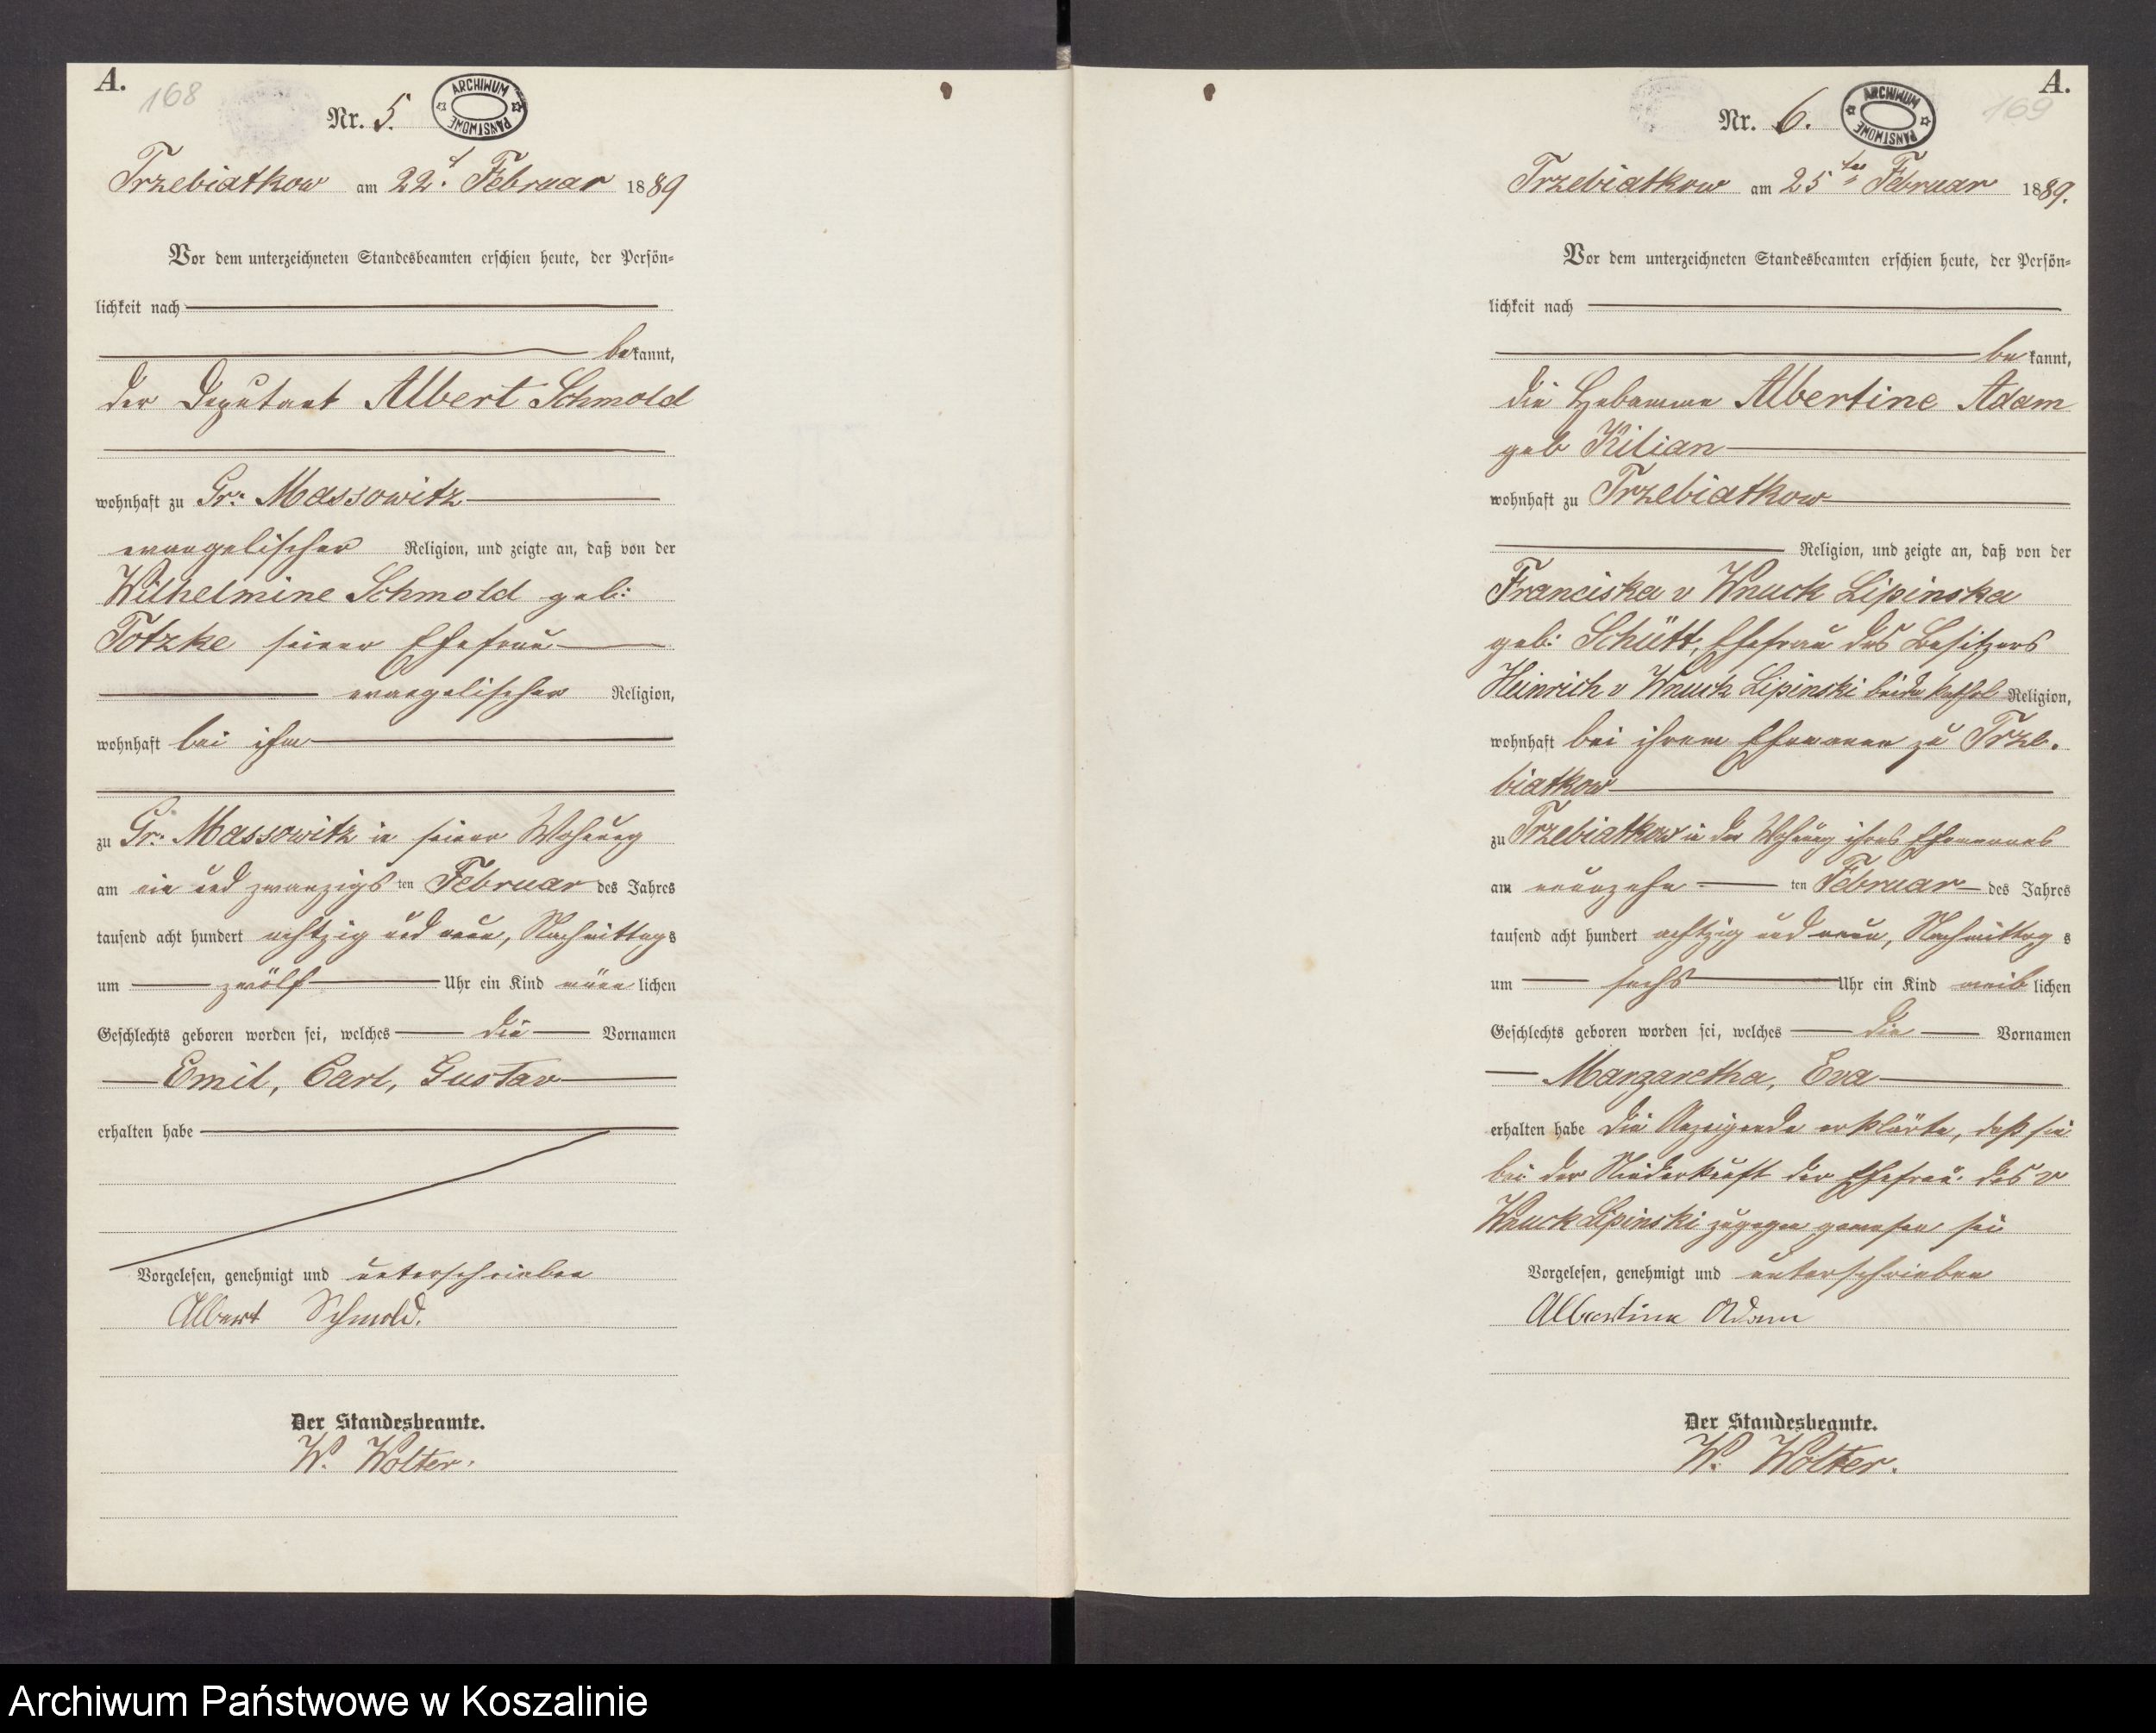 A.
168
Nr. 5.
ARCHIWUM PAŃSTWOWE
Trzebiatkow am 22t. Februar 1889
Vor dem unterzeichneten Standesbeamten erschien heute, der Persön-
lichkeit nach
bekannt,
der Deputant Albert Schmold
wohnhaft zu Gr. Massowitz
evangelischer Religion, und zeigte an, daß von der
Wilhelmine Schmold geb:
Totzke seiner Ehefrau
evangelischer Religion,
wohnhaft bei ihm
zu Gr. Massowitz in seiner Wohnung
am ein und zwanzigsten Februar des Jahres
tausend acht hundert achtzig und neun, Nachmittags
um zwölf Uhr ein Kind männlichen
Geschlechts geboren worden sei, welches die Vornamen
Emil, Carl, Gustav
erhalten habe
Vorgelesen, genehmigt und unterschrieben
Albert Schmold.
Der Standesbeamte.
W. Wolter.
A.
169
Nr. 6.
ARCHIWUM PAŃSTWOWE
Trzebiatkow am 25ten Februar 1889.
Vor dem unterzeichneten Standesbeamten erschien heute, der Persön-
lichkeit nach
bekannt,
die Hebamme Albertine Adam
geb Kilian
wohnhaft zu Trzebiatkow
Religion, und zeigte an, daß von der
Franciska v Wnuck Lipinska
geb: Schütt, Ehefrau des Besitzers
Heinrich v Wnuck Lipinski beide kathol Religion,
wohnhaft bei ihrem Ehemann zu Trze.
biatkow
zu Trzebiatkow in der Wohnung ihres Ehemannes
am neunzehnten Februar des Jahres
tausend acht hundert achtzig und neun, Nachmittags
um sechs Uhr ein Kind weiblichen
Geschlechts geboren worden sei, welches die Vornamen
Margaretha, Eva
erhalten habe die Anzeigende erklärte, daß sie
bei der Niederkunft der Ehefrau des v
Wnuck Lipinski zugegen gewesen sei
Vorgelesen, genehmigt und unterschrieben
Albertine Adam
Der Standesbeamte.
W. Wolter.
Archiwum Państwowe w Koszalinie